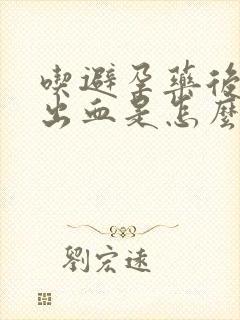 喫避孕藥後
出血是怎麼
劉宏遠